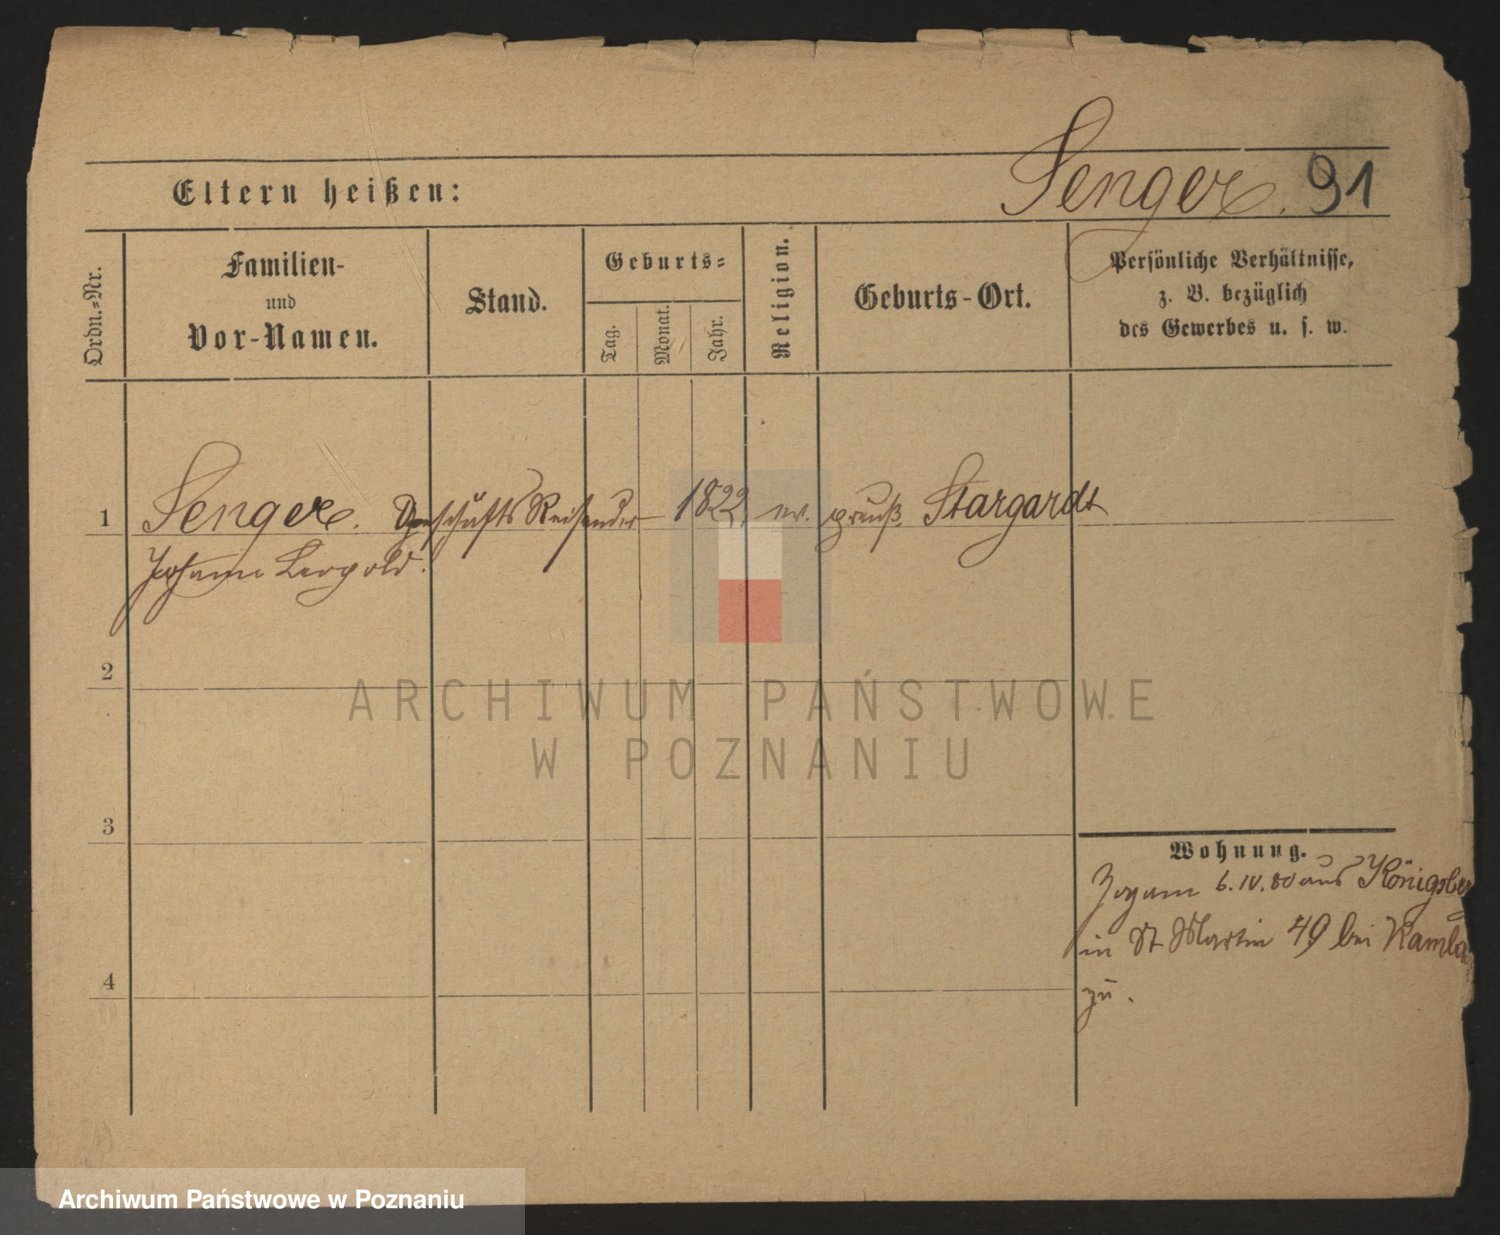 Senger. 91
Eltern heißen:
Ordn.-Nr.
Familien-
und
Vor-Namen.
Stand.
Geburts-
Tag.
Monat.
Jahr.
Religion.
Geburts-Ort.
Persönliche Verhältnisse,
z. B. bezüglich
des Gewerbes u. s. w.
1 Senger. Geschäfts Reisender 1822 ev. preuß. Stargardt
Johann Leopold.
2
3
4
Wohnung.
Zog am 6. IV. 80 aus Königsber
in St Martin 49 bei
zu.
ARCHIWUM PAŃSTWOWE
W POZNANIU
Archiwum Państwowe w Poznaniu